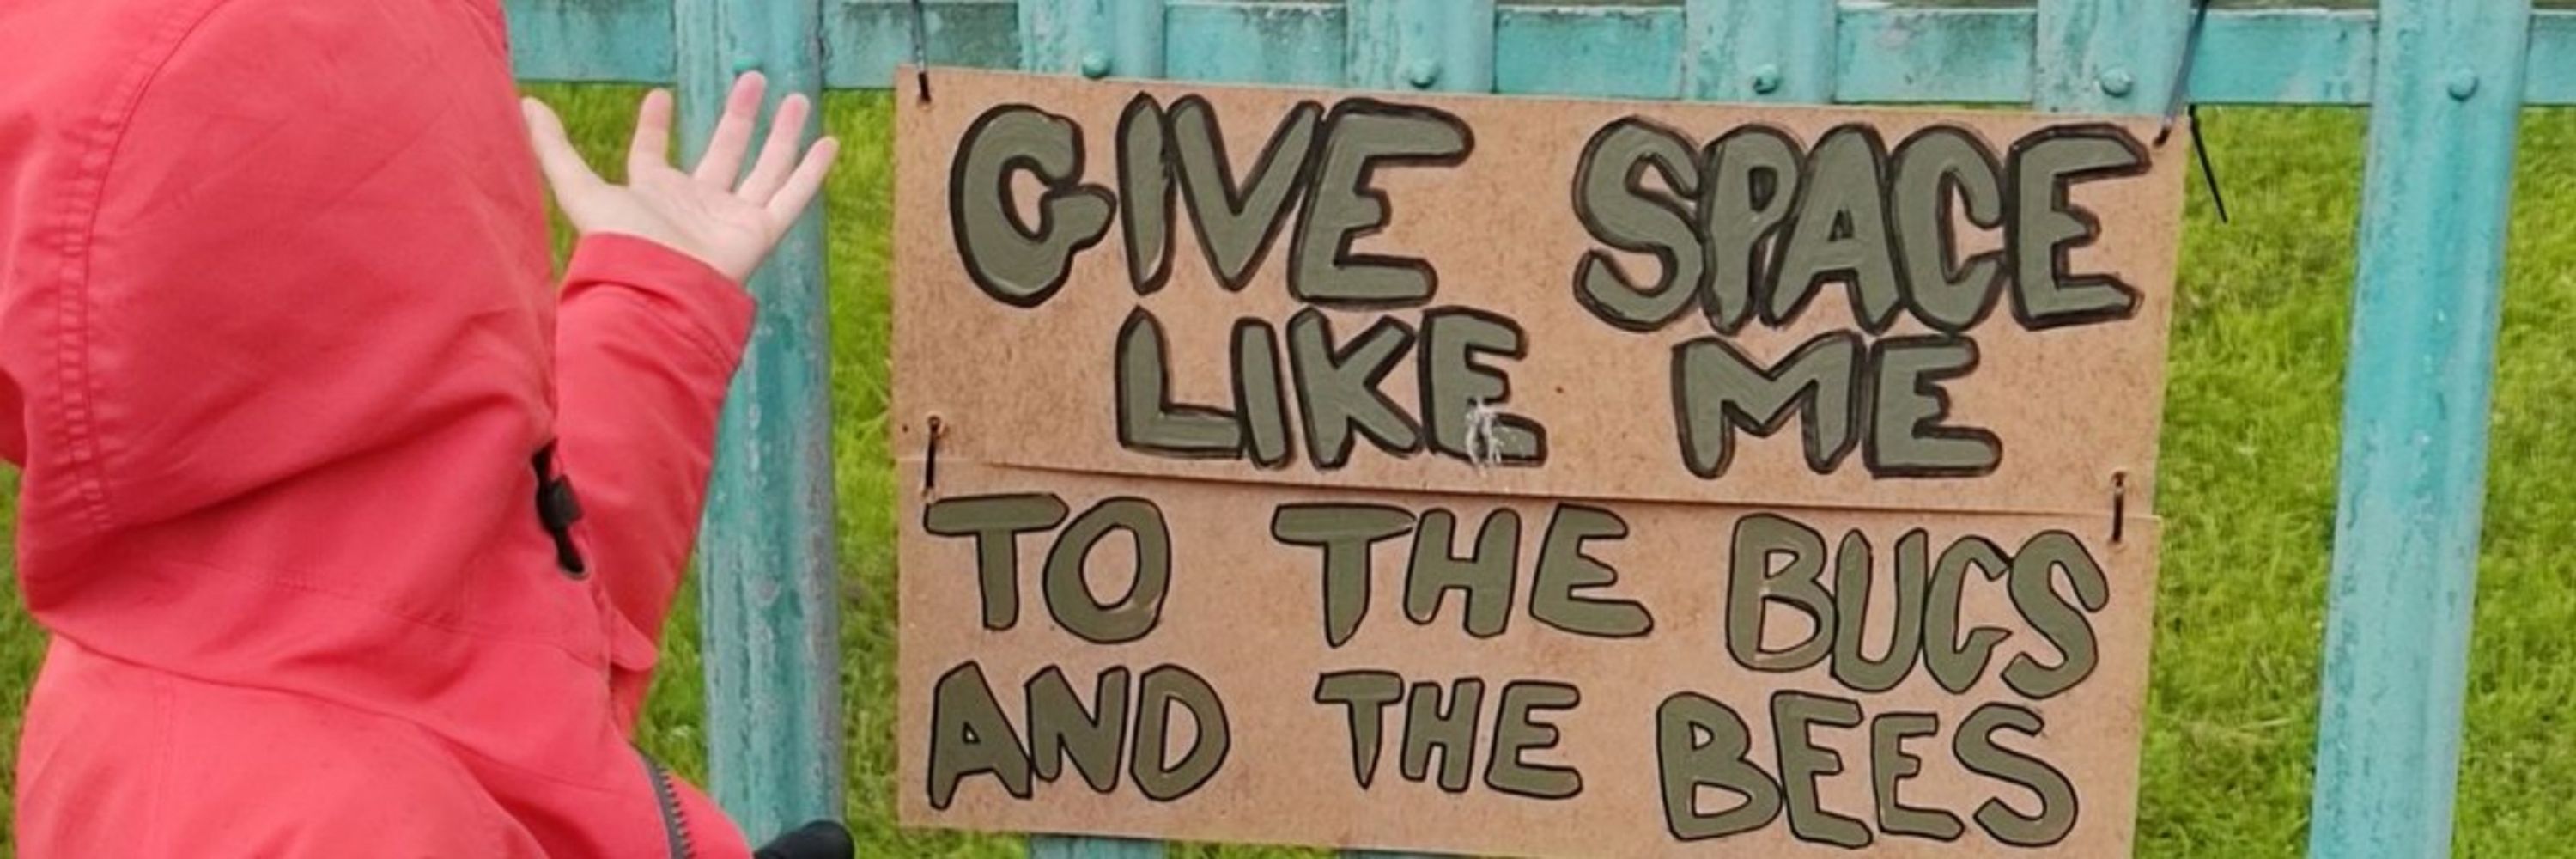 GIVE SPACE
LIKE ME
TO THE BUGS
AND THE BEES